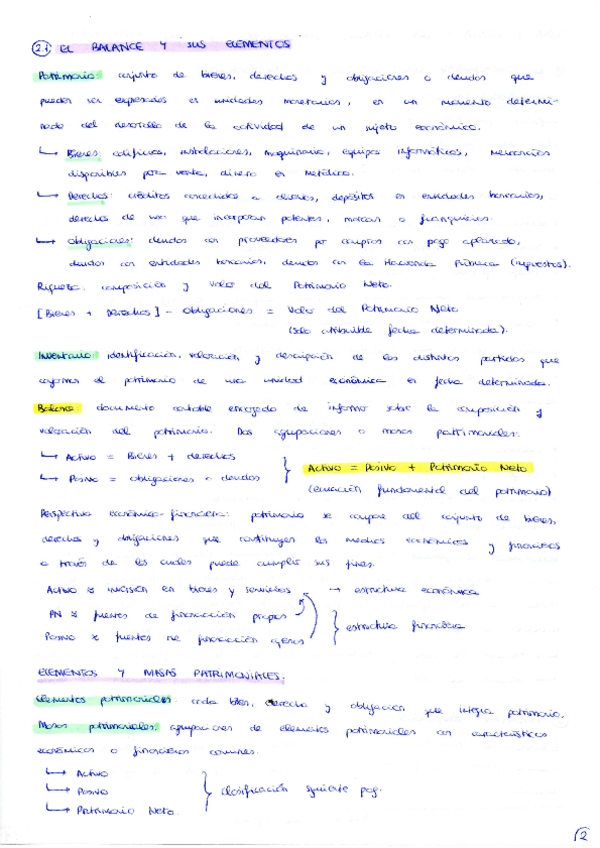 2.1 EL BALANCE Y SUS ELEMENTOS
Patrimonio: conjunto de bienes, derechos y obligaciones o deudas que
pueden ser expresados en unidades monetarias, en un momento determi-
nado del desarrollo de la actividad de un sujeto económico.
↳ Bienes: edificios, instalaciones, maquinaria, equipos informáticos, mercancías
disponibles para venta, dinero en metálico.
↳ Derechos: créditos concedidos a clientes, depósitos en entidades bancarias,
derechos de uso que incorporan patentes, marcas o franquicias.
↳ Obligaciones: deudas con proveedores por compras con pago aplazado,
deudas con entidades bancarias, deudas con la Hacienda Pública (impuestos).
Riqueza: composición y valor del Patrimonio Neto.
[Bienes + Derechos] - Obligaciones = Valor del Patrimonio Neto
(solo atribuible fecha determinada).
Inventario: identificación, valoración y descripción de las distintas partidas que
conforman el patrimonio de una unidad económica en fecha determinada.
Balance: documento contable encargado de informar sobre la composición y
valoración del patrimonio. Dos agrupaciones o masas patrimoniales:
↳ Activo = Bienes + derechos
↳ Pasivo = obligaciones o deudas
Activo = Pasivo + Patrimonio Neto
(ecuación fundamental del patrimonio)
Perspectiva económico-financiera: patrimonio se compone del conjunto de bienes,
derechos y obligaciones que constituyen los medios económicos y financieros
a través de los cuales puede cumplir sus fines.
Activo ≈ inversión en bienes y servicios → estructura económica
PN ≈ fuentes de financiación propias
Pasivo ≈ fuentes de financiación ajenas
estructura financiera
ELEMENTOS Y MASAS PATRIMONIALES.
Elementos patrimoniales: cada bien, derecho y obligación que integra patrimonio.
Masas patrimoniales: agrupaciones de elementos patrimoniales con características
económicas o financieras comunes.
↳ Activo
↳ Pasivo
↳ Patrimonio Neto.
clasificación siguiente pag.
2